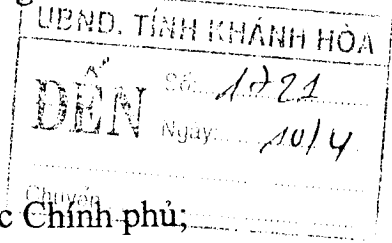 UBND. TỈNH KHÁNH HÒA
ĐẾN
Số: 1721
Ngày: 10/4
Chuyển
c Chính phủ;